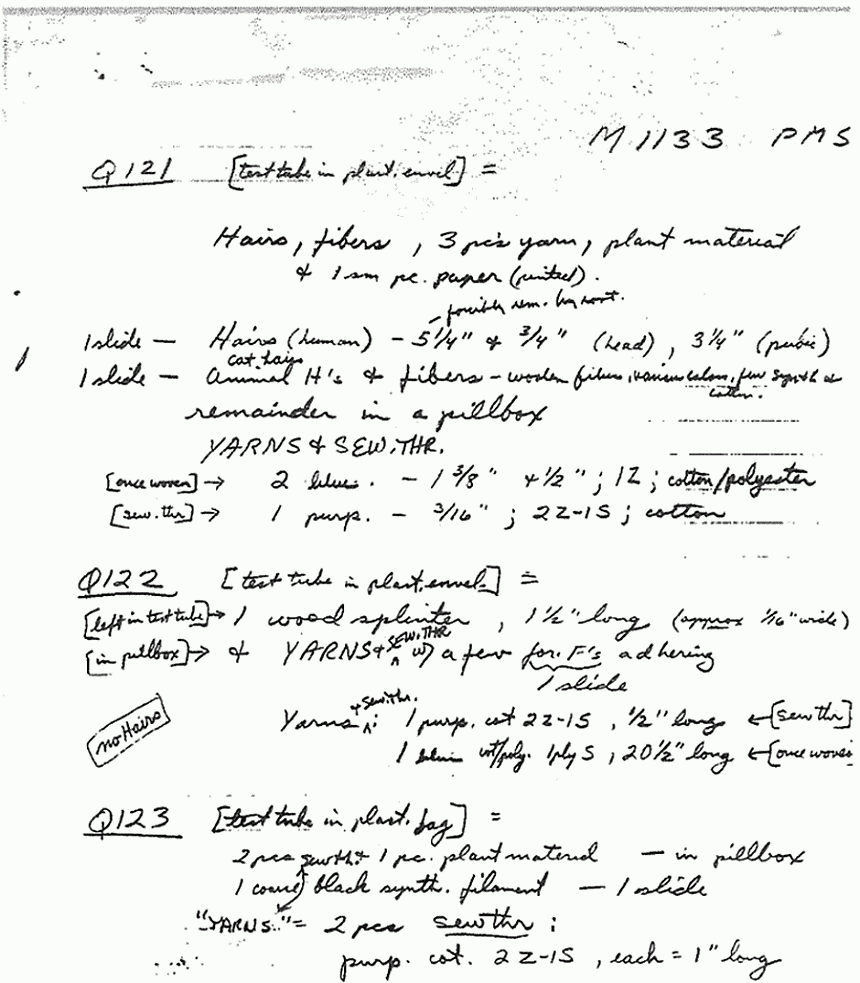 M1133 PMS
Q121 [test tube in plast. envel] =
Hairs, fibers, 3 pcs yarn, plant material
& 1 sm pc. paper (printed).
- possibly rem. by root.
1 slide — Hairs (human) - 5 1/4" & 3/4" (head), 3 1/4" (pubic)
cat hairs
1 slide — Animal H's & fibers - woolen fibers, various colors, few synth &
cotton.
remainder in a pillbox
YARNS & SEW. THR.
[once woven] → 2 blue. - 1 3/8" & 1/2"; 1Z; cotton/polyester
[sew. thr] → 1 purp. - 3/16"; 2Z-1S; cotton
Q122 [test tube in plast. envel.] =
[left in test tube] → 1 wood splinter, 1 1/2" long (approx 1/16" wide)
[in pillbox] → & YARNS & SEW. THR w/ a few for. F's adhering
1 slide
Yarns & sew. thr.: 1 purp. cot 2Z-1S, 1/2" long ← [sew thr]
no Hairs
1 blue cot/poly. 1ply S, 20 1/2" long ← [once woven
Q123 [test tube in plast. bag] =
2 pcs sewth. & 1 pc. plant material — in pillbox
1 coarse black synth. filament — 1 slide
"YARNS" = 2 pcs sewthr:
purp. cot. 2Z-1S, each = 1" long